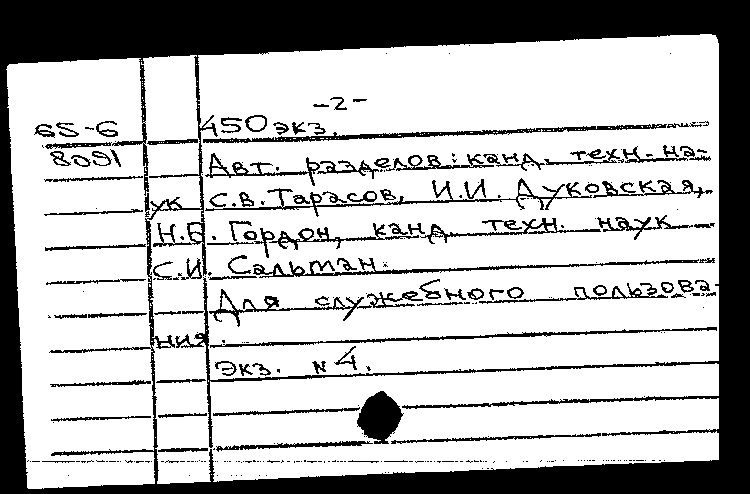 -2-
65-6 450 экз.
8091 Авт. разделов: канд. техн. на-
ук С.В. Тарасов, И.И. Дуковская,
Н.Б. Гордон, канд. техн. наук
С.И. Сальман.
Для служебного пользова-
ния.
Экз. N 4.